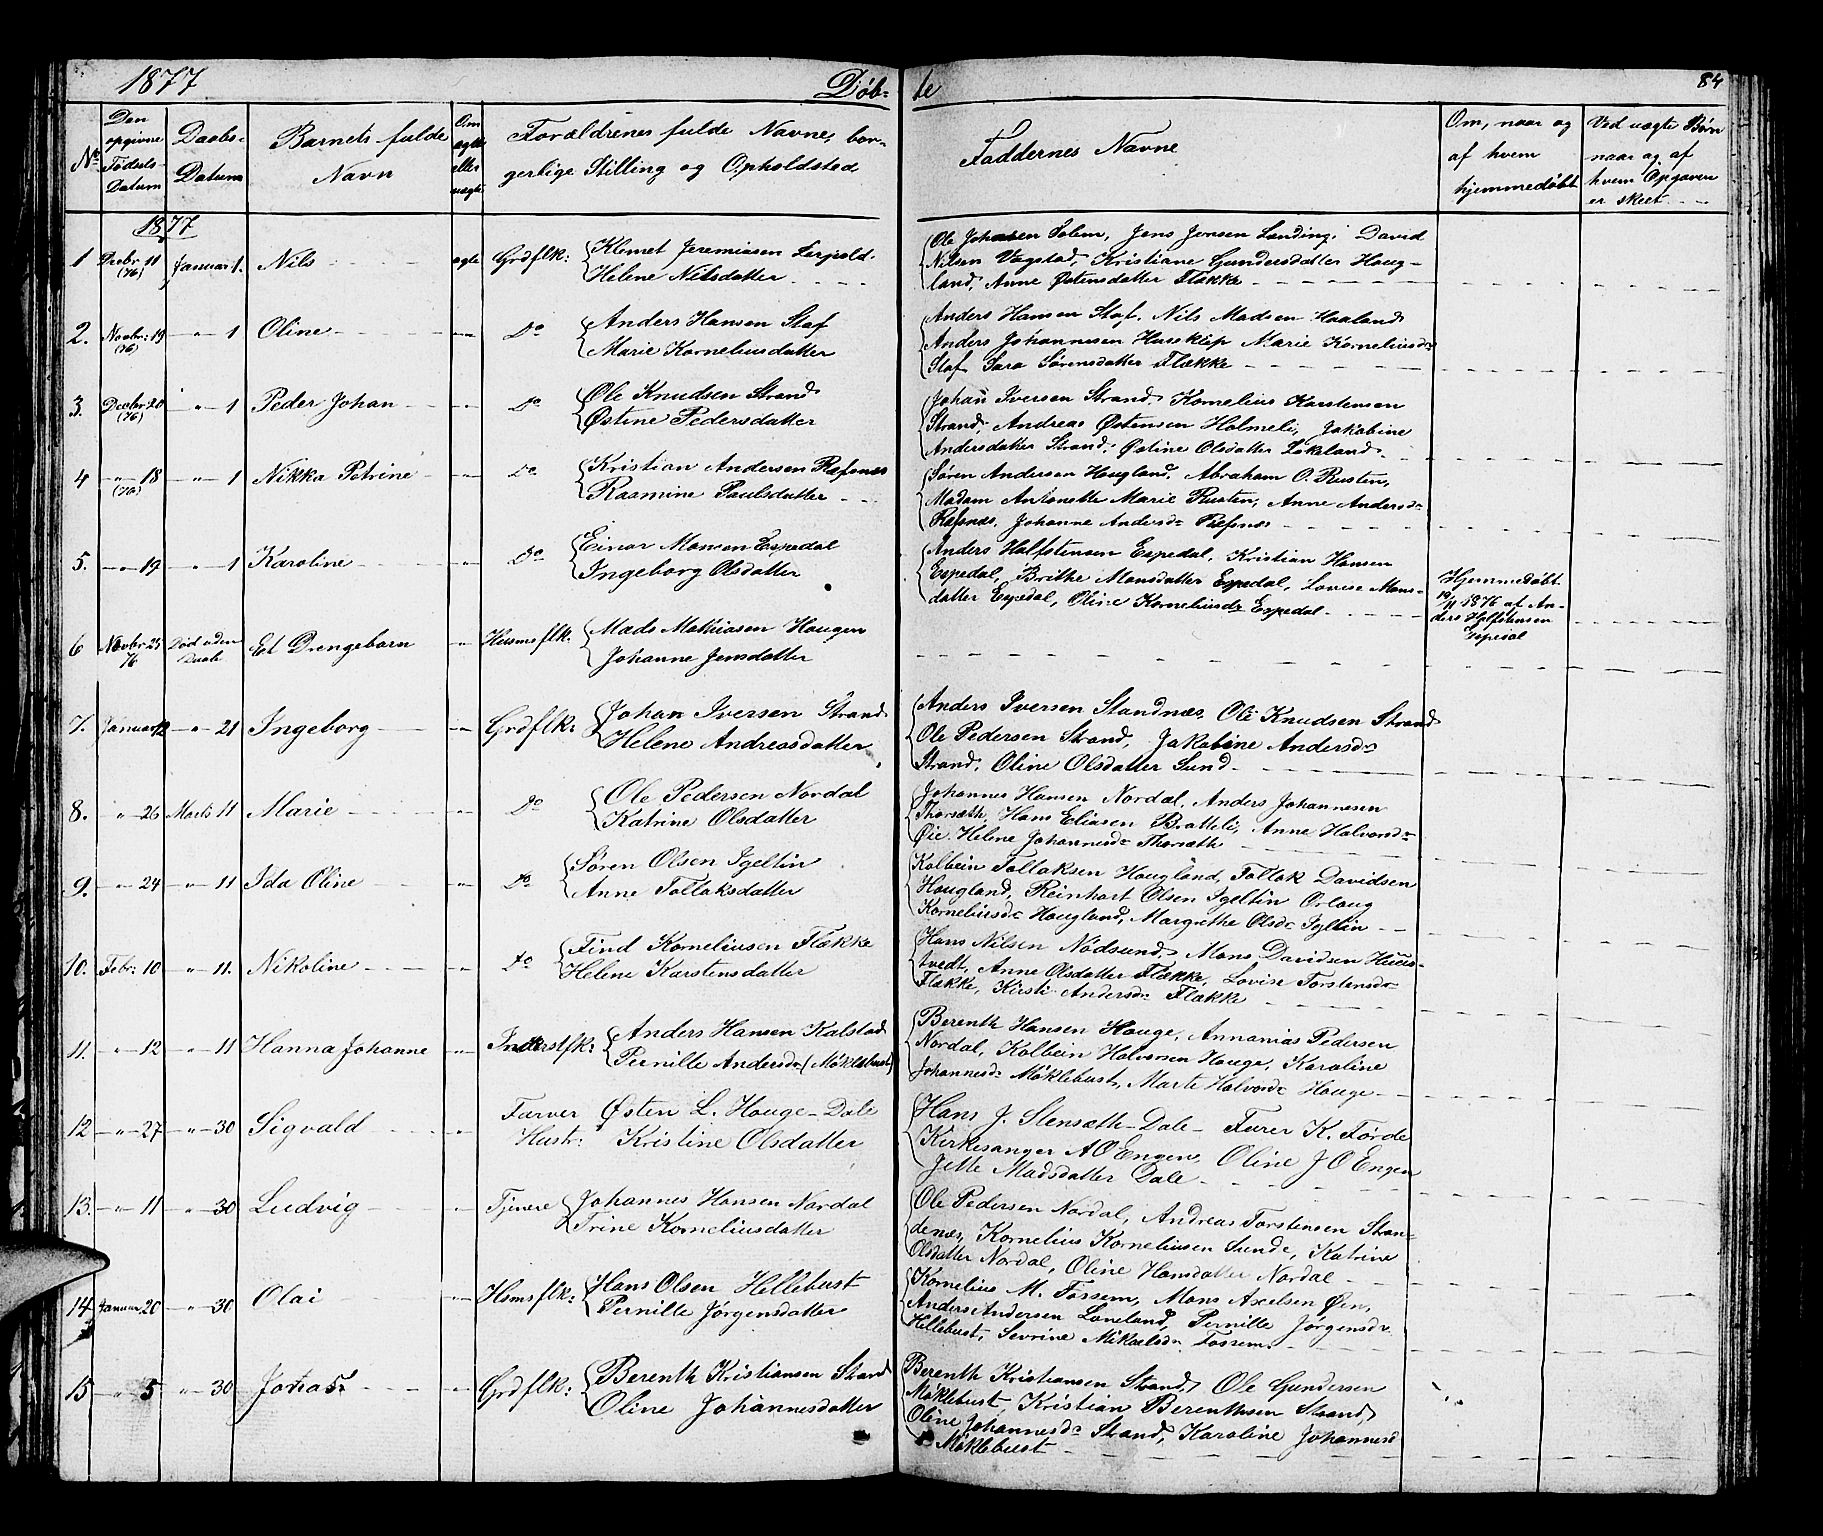 1877
Døb-
te
84
No
Den opgivne Fødsels-Datum
Daabs-Datum
Barnets fulde Navn
Om ægte eller uægte
Forældrenes fulde Navne, bor-
gerlige Stilling og Opholdsted
Faddernes Navne
Om, naar og
af hvem
hjemmedøbt
Ved uægte Børn
naar og af
hvem Opgaven
er skeet
1877
1 Decbr 11 (76) Januar 1. Nils ægte Grdflk: Klemet Jeremiasen
Helene Nilsdatter
Ole Johansen Solem, Jens Jensen Landing, David
Nilsen Vagstad, Kristiane Gundersdatter Houg-
land, Anne Østensdatter Flække
2. Novbr: 19 (76) " 1 Oline " Do Anders Hansen Staf
Marie Korneliusdatter
Anders Hansen Staf, Nils Madsen Haaland
Anders Johannesen Husskip Marie Korneliusdr
Staf Sara Sørensdatter Flække
3. Decbr 20 (76) " 1 Peder Johan " Do Ole Knudsen Strand
Østine Pedersdatter
Johan Iversen Strand, Kornelius Karstensen
Strand, Andreas Østensen Holmeli, Jakobine
Andersdatter Strand, Østine Olsdatter Lökeland
4 " 18 (76) " 1 Nikka Petrine " Do Kristian Andersen Ræfsnæs
Rasmine Paulsdatter
Søren Andersen Hougland, Abraham O. Rusten,
Madam Antonette Marie Rusten, Anne Andersdr
Ræfsnæs, Johanne Andersdr Ræfsnæs
5. " 19 " 1 Karoline " Do Einar Monsen Espedal
Ingeborg Olsdatter
Anders Halfstensen Espedal, Kristian Hansen
Espedal, Brithe Monsdatter Espedal, Lovise Mons-
datter Espedal, Oline Korneliusdr Espedal
Hjemmedøbt
19/11 1876 af An-
ders Halfstensen
Espedal
6 Novbr 25 76 Død uden Daab Et Drengebarn " Husmsflk: Mads Mathiasen Haugen
Johanne Jensdatter
7. Januar 12 " 21 Ingeborg " Grdflk: Johan Iversen Strand
Helene Andreasdatter
Anders Iversen Standnæs, Ole Knudsen Strand
Ole Pedersen Strand, Jakobine Andersdr
Strand, Oline Olsdatter Sund
8. " 26 Marts 11 Marie " Do Ole Pedersen Nordal
Katrine Olsdatter
Johannes Hansen Nordal, Anders Johannesen
Thorsæth, Hans Eliasen Bratteli, Anne Halvorsdr
Øie, Helene Johannesdr Thorsæth
9. " 24 " 11 Ida Oline " Do Søren Olsen Igeltin
Anne Tollaksdatter
Kolbein Tollaksen Hougland, Tollak Davidsen
Hougland, Reinhart Olsen Igeltin Orlaug
Korneliusdr Hougland, Margrethe Olsdr Igeltin
10. Febr: 10 " 11. Nikoline " Do Find Korneliusen Flække
Helene Karstensdatter
Hans Nilsen Nødsund, Mons Davidsen Huus-
tvedt, Anne Olsdatter Flække, Lovise Torstensdr
Flække, Kirsti Andersdr Flække
11. " 12 " 11 Hanna Johanne " Inderstfk: Anders Hansen Kalstad
Pernille Andersdr (Møklebust)
Berenth Hansen Houge, Annanias Pedersen
Nordal, Kolbein Halvorsen Houge, Karoline
Johannesdr Møklebust, Marte Halvordr Houge
12 " 27 " 30 Sigvald " Farver Østen L. Houge-Dale
Hustr: Kristine Olsdatter
Hans J. Stensæth-Dale- Furer K. Førde
Kirkesanger A O Engen, Oline J O Engen
Jette Madsdatter Dale
13. " 11 " 30 Ludvig " Tjenere Johannes Hansen Nordal
Trine Korneliusdatter
Ole Pedersen Nordal, Andreas Torstensen Stran-
denæs, Kornelius Korneliusen Sunde, Katrine
Olsdatter Nordal, Oline Hansdatter Nordal
14 Januar 20 " 30 Olai " Hsmsflk: Hans Olsen Hellebust
Pernille Jørgensdatter
Kornelius M. Fossem, Mons Axelsen Øen,
Anders Andersen Loneland, Pernille Jørgensdr
Hellebust, Sevrine Mikaelsdr Fossem
15 " 5 " 30 Johas " Grdflk: Berenth Kristiansen Strand
Oline Johannesdatter
Berenth Kristiansen Strand, Ole Gundersen
Møklebust, Kristian Berenthsen Strand,
Oline Johannesdr Strand, Karoline Johannesd
Møklebust